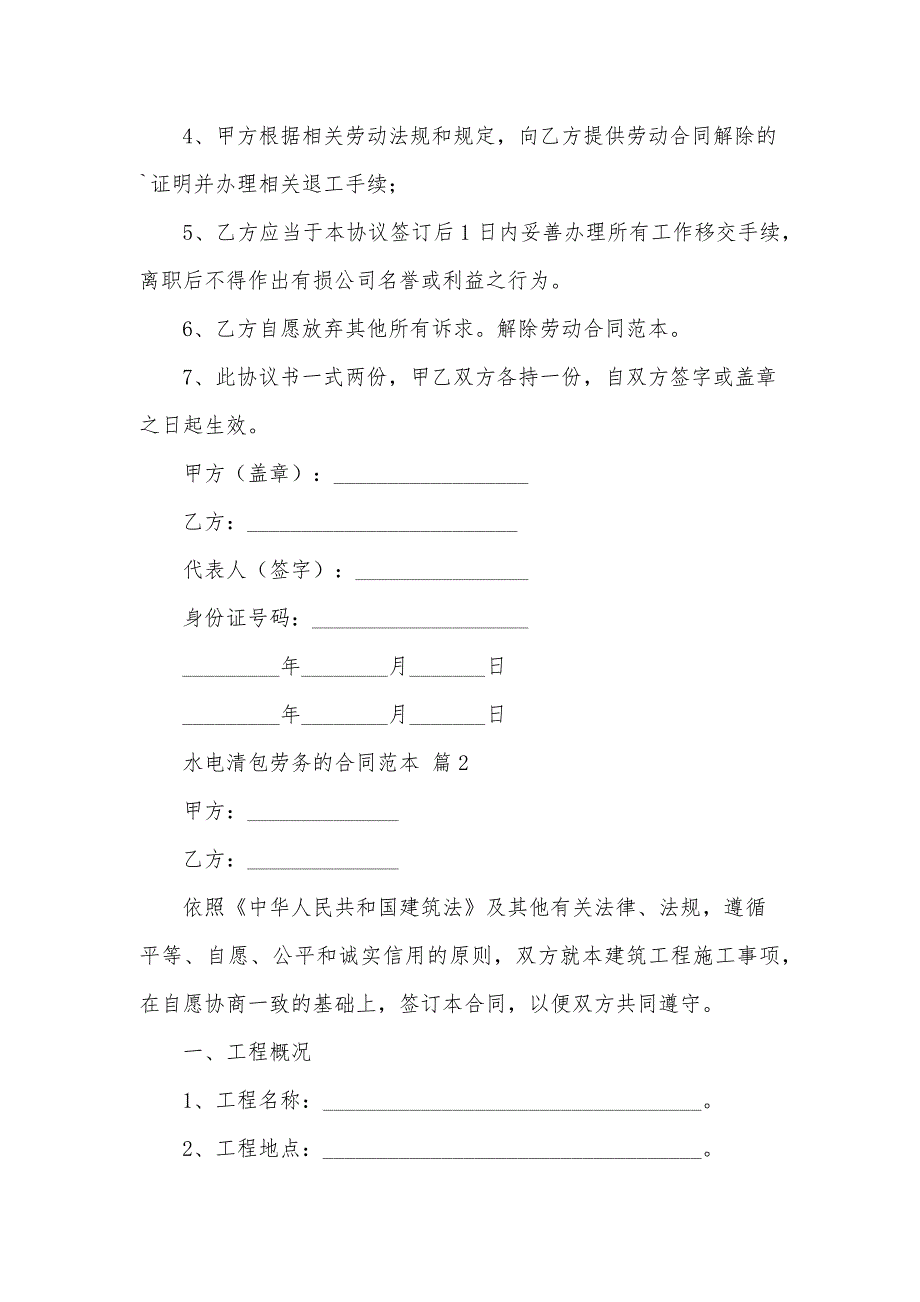 4、甲方根据相关劳动法规和规定，向乙方提供劳动合同解除的
`证明并办理相关退工手续；
5、乙方应当于本协议签订后1日内妥善办理所有工作移交手续，
离职后不得作出有损公司名誉或利益之行为。
6、乙方自愿放弃其他所有诉求。解除劳动合同范本。
7、此协议书一式两份，甲乙双方各持一份，自双方签字或盖章
之日起生效。
甲方（盖章）：__________________
乙方：_________________________
代表人（签字）：________________
身份证号码：____________________
_________年________月_______日
_________年________月_______日
水电清包劳务的合同范本 篇2
甲方：______________
乙方：______________
依照《中华人民共和国建筑法》及其他有关法律、法规，遵循
平等、自愿、公平和诚实信用的原则，双方就本建筑工程施工事项，
在自愿协商一致的基础上，签订本合同，以便双方共同遵守。
一、工程概况
1、工程名称：___________________________________。
2、工程地点：___________________________________。